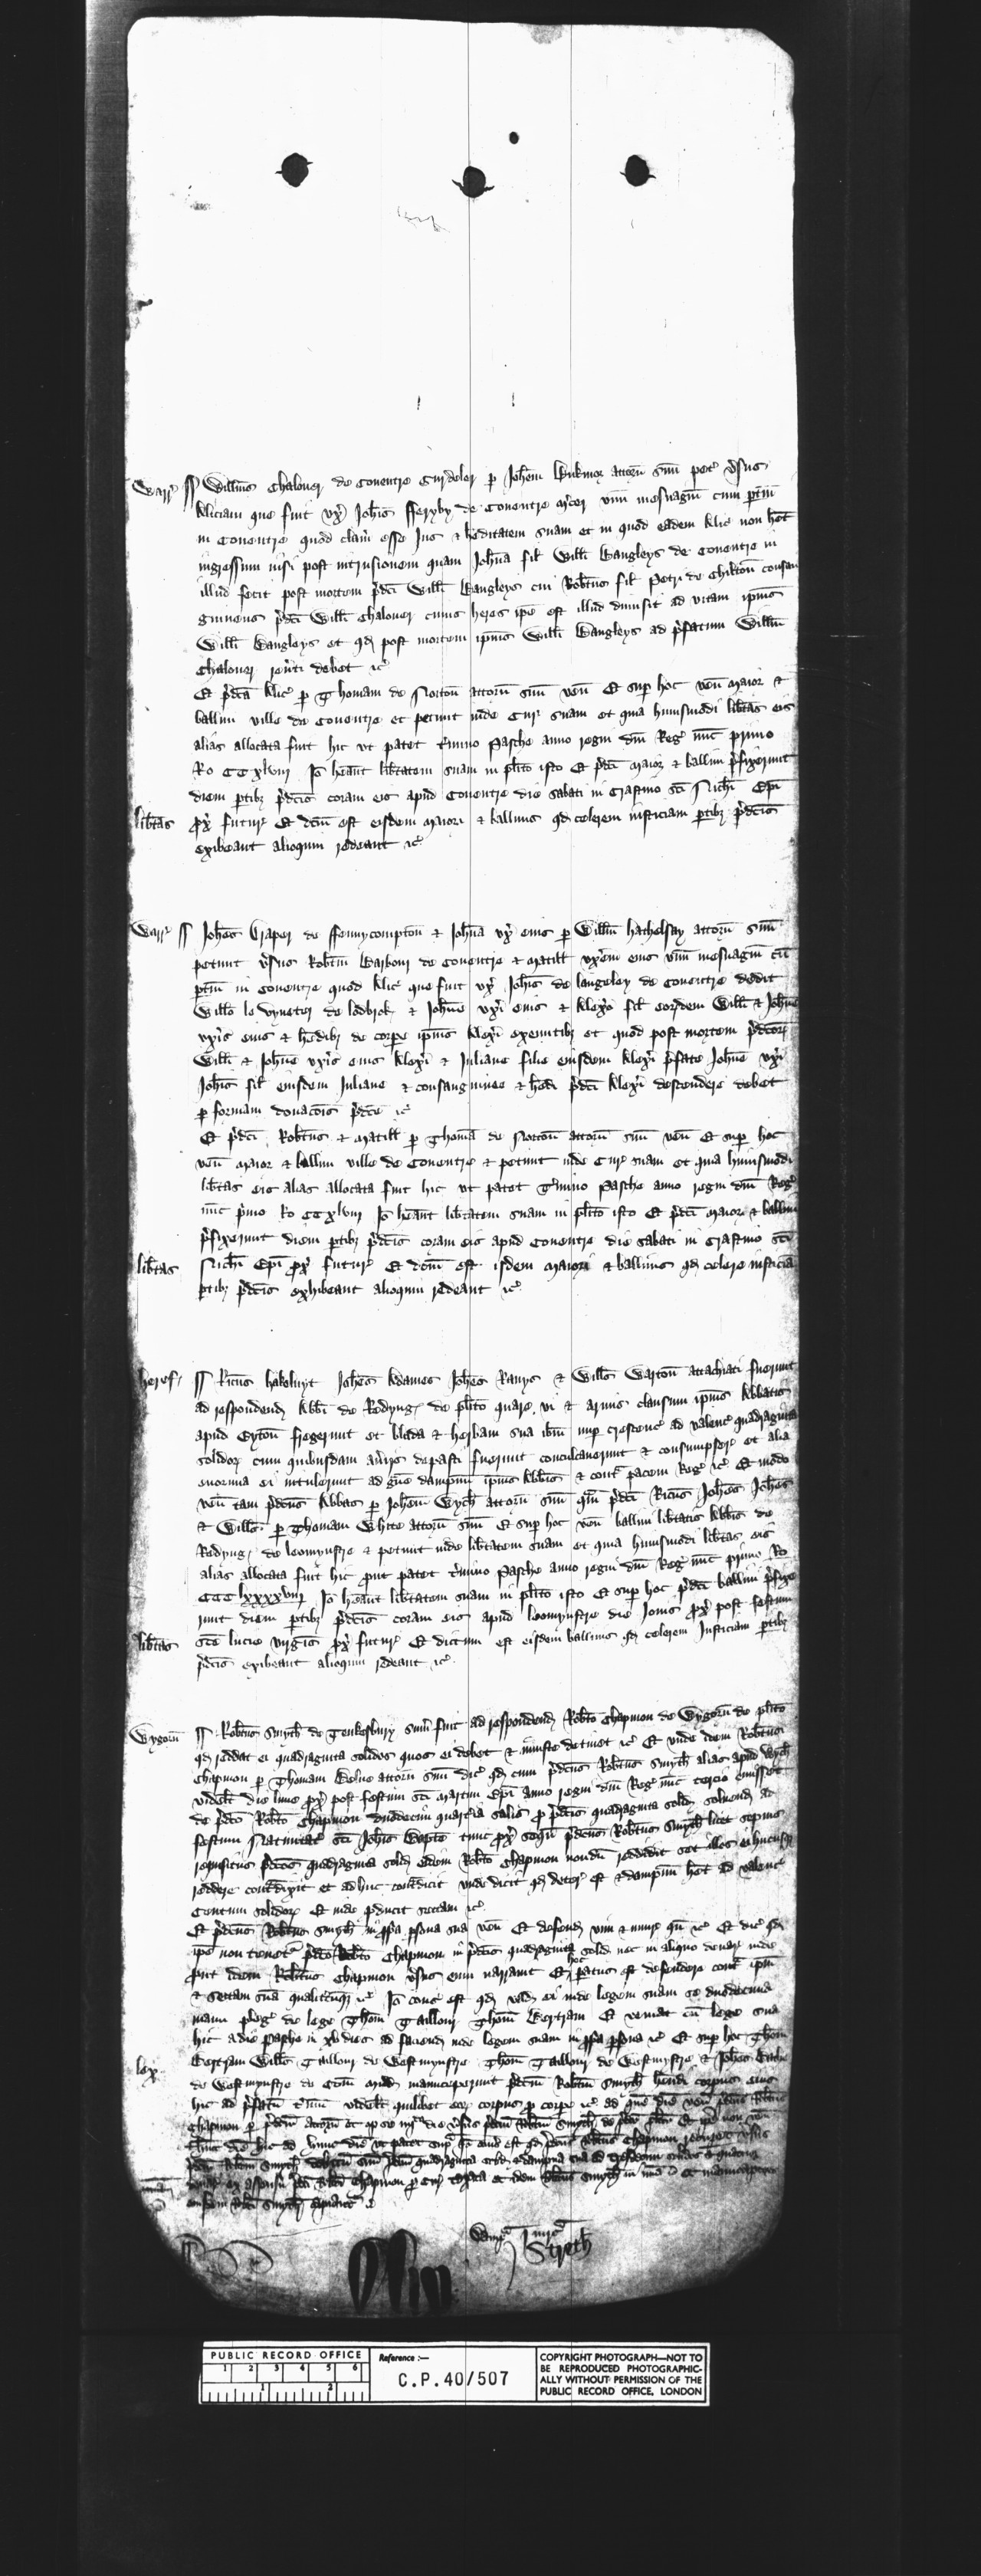 Warr' Willms Chaloner de Couentre Gurdeler p Johem Bukmor attorn suu pet' vsus
Aliciam que fuit vx' Johis fferyby de Couentre mcer vnu mesuagiu cum ptin
in Couentre quod clam esse Jus & heditatem suam et in quod eadem Alic' non het
ingressum nisi post intrusionem quam Johna fil Willi Bangleys de Couentre in
illud fecit post mortem pdci Willi Bangleys cui Robtus fil Petri de Chilton consan
guineus pdci Willi Chaloner cuius heres ipe est illud dimisit ad vitam ipius
Willi Bangleys et qd post mortem ipius Willi Bangleys ad pfatum Willm
Chaloner reuti debet &c'
Et pdca Alic' p Thomam de Norton attorn suu ven Et sup hoc ven maior &
balliui ville de Couentre et petunt inde Cur' suam et quia huiusmodi libtas eis
alias allocata fuit hic vt patet Tmino Pasche anno regni dni Reg' nuc primo
Ro CC xlviij Io heant libtatem suam in plito isto Et pdci maior & balliui pfixerunt
diem ptibz pdcis coram eis apud Couentre die sabati in Crastino sci Nichi Epi
libtas px' futur' Et dcm est eisdem maiori & balliuis qd celerem iusticiam ptibz pdcis
exibeant alioquin redeant &c'
Warr' Johes Draper de ffennycompton & Johna vx' eius p Willm Hathelsay attorn suu
petunt vsus Robtm Barbour de Couentre & Matill vxem eius vnu mesuagiu cu
ptin in Couentre quod Alic' que fuit vx' Johis de Langeley de Couentre dedit
Willo le Vyneter de Lodbrok & Johne vxi eius & Alexo fil eordem Willi & Johne
vxis eius & hedibz de corpe ipius Alexi exeuntibz et quod post mortem pdcor'
Willi & Johne vxis eius Alexi & Juliane filie eiusdem Alexi pfate Johne vxi
Johis fil eiusdem Juliane & consanguinee & hedi pdci Alexi descendere debet
p formam donacois pdce &c'
Et pdci Robtus & Matill p Thoma de Norton attorn suu ven Et sup hoc
ven maior & balliui ville de Couentre & petunt inde Cur' suam et quia huiusmodi
libtas eis alias allocata fuit hic vt patet Tmino Pasche anno regni dni Reg'
nuc pmo Ro CC xlviij Io heant libtatem suam in plito isto Et pdci maior & balliui
pfixerunt diem ptibz pdcis coram eis apud Couentre die sabati in Crastino sci
libtas Nichi Epi px' futur' Et dcm est isdem maiori & balliuis qd celere iusticia
ptibz pdcis exhibeant alioquin redeant &c'
Heref' Ricus Hakeluyt Johes Adames Johes Rauys & Wills Warton attachiati fuerunt
ad respondend Abbi de Redyng' de plito quare vi & armis clausum ipius Abbatis
apud Eyton fregerunt et blada & herbam sua ibm nup crescenc' ad valenc' quadraginta
solidor' cum quibusdam auijs depasti fuerunt conculcauerunt & consumpser' et alia
enormia ei intulerunt ad graue dampnu ipius Abbis & cont' pacem Reg' &c' Et modo
ven tam pdcus Abbas p Johem Wych attorn suu qm pdci Ricus Johes Johes
& Wills p Thomam White attorn suu Et sup hoc ven balliui libtatis Abbis de
Redyng' de Leomynstre & petunt inde libtatem suam et quia huiusmodi libtas eis
alias allocata fuit hic prout patet Tmino Pasche anno regni dni Reg' nuc primo Ro
CCC lxxxxviij Io heant libtatem suam in plito isto Et sup hoc pdci balliui pfixe
runt diem ptibz pdcis coram eis apud Leomynstre die Jouis px' post festum
libtas sce Lucie virgis px' futur' Et dictum est eisdem balliuis qd celerem Justiciam ptibz
pdcis exibeant alioquin redeant &c'
Wygorn Robtus Smyth de Teukesbury sum fuit ad respondend Robto Chapmon de Wygorn de plito
qd reddat ei quadraginta solidos quos ei debet & iniuste detinet &c' Et vnde idem Robtus
Chapmon p Thomam Belne attorn suu dic' qd cum pdcus Robtus Smyth alias apud Wych
videlt die lune px' post festum sci Martini Epi anno regni dni Reg' nuc tercio emisset
de pdco Robto Chapmon duodecim quartia salis p pdcis quadraginta solid soluend ad
festum Natiuitat' sci Johis Bapte tunc px' sequen pdcus Robtus Smyth licet sepius
requisitus pdcos quadraginta solid eidem Robto Chapmon nondu reddidit set illos ei hucusq
reddere contdixit et adhuc contdicit vnde dicit qd deter' est & dampnu het ad valenc'
Centum solidor' Et inde pducit sectam &c'
Et pdcus Robtus Smyth in ppa psona sua ven Et defend vim & iniur' qn &c' Et dic' qd
ipe non tenet' pdco Robto Chapmon in pdcis quadraginta solid nec in aliquo denar' inde
prout idem Robtus Chapmon vsus eum narrauit Et hoc patus est defendere cont' ipm
& sectam sua qualitcumq &c' Io cons' est qd vad ei inde legem suam se duodecima
manu pleg' de lege Thom Taillour Thom Bertram Et veniat cu lege sua
hic a die Pasche in xv dies ad faciend inde legem suam in ppa psona &c' Et sup hoc Thom
Bertram Wills Taillour de Westmynstre Thom Taillour de Westmynstre & Johes
lex de Westmynstre de Com Midd manuceperunt pdcm Robtum Smyth hendi corpus eius
hic ad pfatu tmiu videlt quilibet eor' corpus p corpe &c' ad que die ven pdcus Robtus
Chapmon p pdcm attorn
Robtm Smyth
Robti Smyth
Streth
PUBLIC RECORD OFFICE
1 2 3 4 5 6
1 2
Reference :—
C.P. 40/507
COPYRIGHT PHOTOGRAPH—NOT TO
BE REPRODUCED PHOTOGRAPHIC-
ALLY WITHOUT PERMISSION OF THE
PUBLIC RECORD OFFICE, LONDON